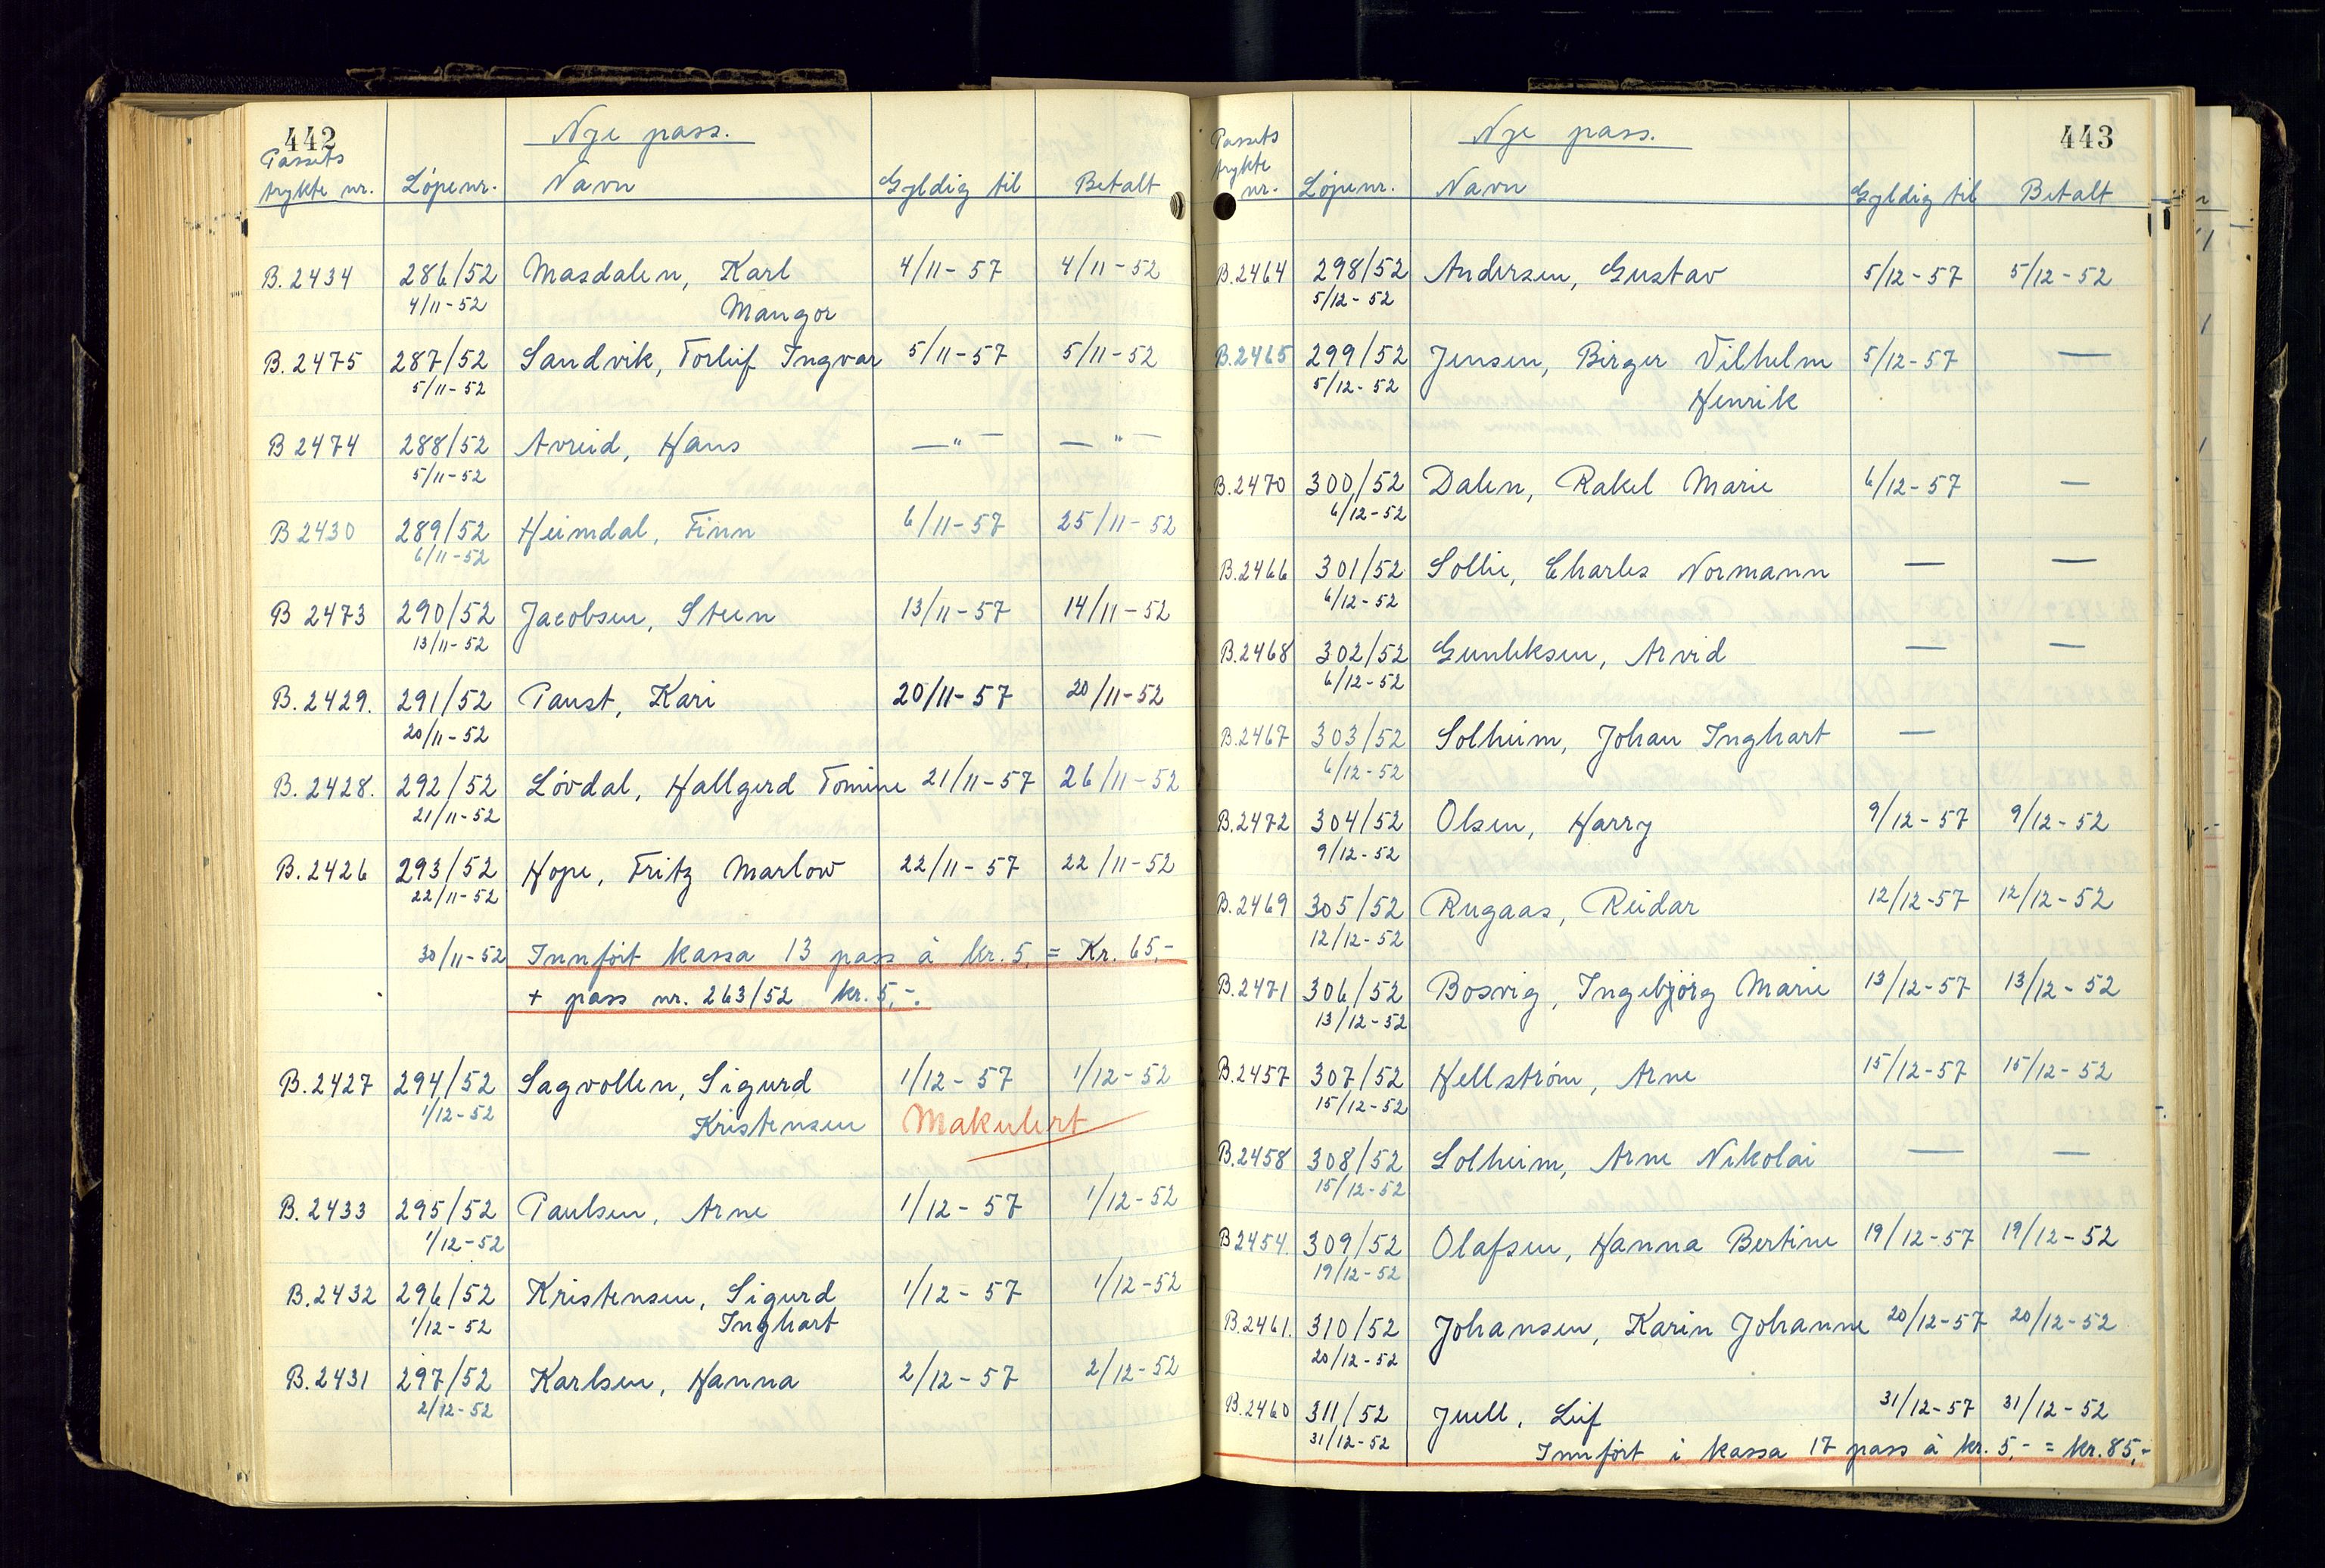 442
Nye pass.
Passets
trykte nr. Löpenr. Navn Gyldig til Betalt
B. 2434 286/52 Masdalen, Karl 4/11-57 4/11-52
4/11-52 Mangor
B. 2475 287/52 Sandvik, Torleif Ingvar 5/11-57 5/11-52
5/11-52
B 2474 288/52 Avreid, Hans —"— —"—
5/11-52
B 2430 289/52 Heimdal, Finn 6/11-57 25/11-52
6/11-52
B 2473 290/52 Jacobsen, Steen 13/11-57 14/11-52
13/11-52
B. 2429. 291/52 Paust, Kari 20/11-57 20/11-52
20/11-52
B. 2428. 292/52 Lövdal, Hallgerd Tomine 21/11-57 26/11-52
21/11-52
B. 2426 293/52 Hope, Fritz Marlow 22/11-57 22/11-52
22/11-52
30/11-52 Innfört kassa 13 pass à kr. 5, = Kr. 65,-
+ pass nr. 263/52 kr. 5,-.
B. 2427 294/52 Sagvollen, Sigurd 1/12-57 1/12-52
1/12-52 Kristensen Makulert
B. 2433 295/52 Paulsen, Arne 1/12-57 1/12-52
1/12-52
B. 2432 296/52 Kristensen, Sigurd 1/12-57 1/12-52
1/12-52 Inghart
B. 2431 297/52 Karlsen, Hanna 2/12-57 2/12-52
2/12-52
443
Nye pass.
Passets
trykte
nr. Löpenr. Navn Gyldig til Betalt
B.2464 298/52 Andersen, Gustav 5/12-57 5/12-52
5/12-52
B.2465 299/52 Jensen, Birger Vilhelm 5/12-57 —
5/12-52 Henrik
B.2470 300/52 Dalen, Rakel Marie 6/12-57 —
6/12-52
B.2466 301/52 Sollie, Charles Normann — —
6/12-52
B.2468 302/52 Gunleksen, Arvid — —
6/12-52
B.2467 303/52 Solheim, Johan Inghart —
6/12-52
B.2472 304/52 Olsen, Harry 9/12-57 9/12-52
9/12-52
B.2469 305/52 Rugaas, Reidar 12/12-57 12/12-52
12/12-52
B.2471 306/52 Bosvig, Ingebjörg Marie 13/12-57 13/12-52
13/12-52
B.2457 307/52 Hellström, Arne 15/12-57 15/12-52
15/12-52
B.2458 308/52 Solheim, Arne Nikolai — —
15/12-52
B 2454. 309/52 Olafsen, Hanna Bertine 19/12-57 19/12-52
19/12-52
B.2461. 310/52 Johansen, Karin Johanne 20/12-57 20/12-52
20/12-52
B.2460 311/52 Juell, Leif 31/12-57 31/12-52
31/12-52 Innfört i kassa 17 pass à kr. 5,- = kr. 85,-